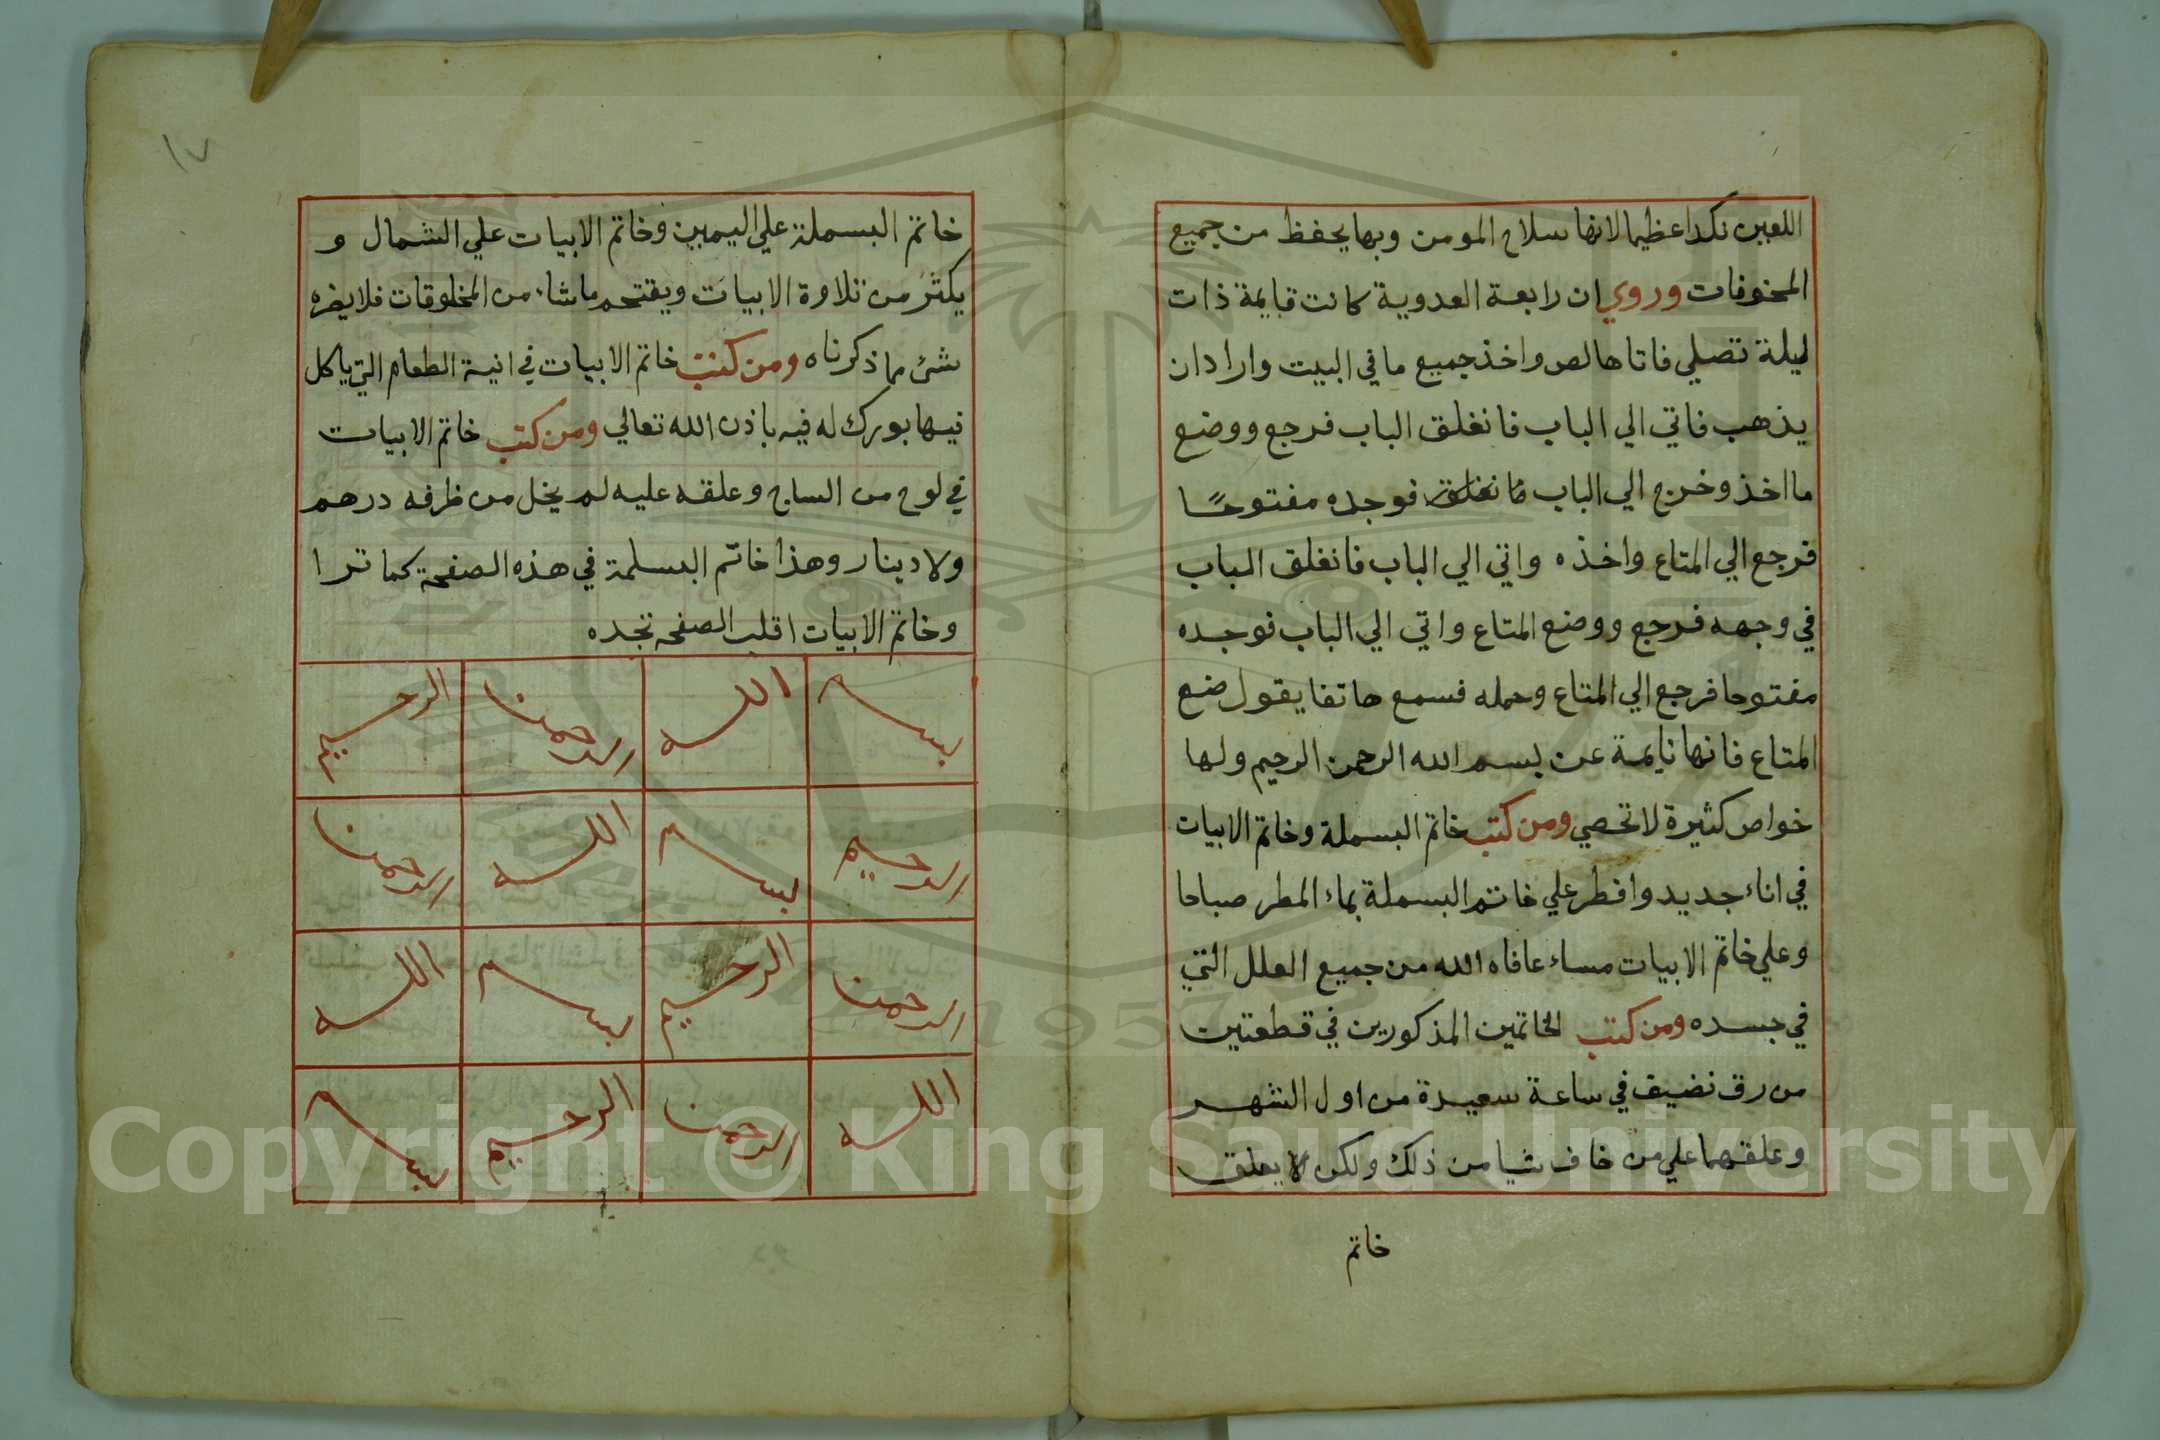 اللعين نكدا عظيما لانها سلاح المومن وبها يحفظ من جميع
المخوفات وروي ان رابعة العدوية كانت قايمة ذات
ليلة تصلي فاتاها لص واخذ جميع ما في البيت واراد ان
يذهب فاتي الي الباب فانغلق الباب فرجع ووضع
ما اخذ وخرج الي الباب فوجده مفتوحًا
فرجع الي المتاع واخذه واتي الي الباب فانغلق الباب
في وجهه فرجع ووضع المتاع واتي الي الباب فوجده
مفتوحا فرجع الي المتاع وحمله فسمع هاتفا يقول ضع
المتاع فانها نايمة عن بسم الله الرحمن الرحيم ولها
خواص كثيرة لا تحصي ومن كتب خاتم البسملة وخاتم الابيات
في اناء جديد وافطر علي خاتم البسملة بماء المطر صباحا
وعلي خاتم الابيات مساء عافاه الله من جميع العلل التي
في جسده ومن كتب الخاتمين المذكورين في قطعتين
من رق نضيف في ساعة سعيدة من اول الشهر
وعلقهما علي من خاف شيا من ذلك ولكن لا يعلق
خاتم
١٧
خاتم البسملة علي اليمين وخاتم الابيات علي الشمال و
يكثر من تلاوة الابيات ويقتحم ما شاء من المخلوقات فلا يضره
شئ مما ذكرناه ومن كتب خاتم الابيات في انية الطعام التي ياكل
فيها بورك له فيه باذن الله تعالي ومن كتب خاتم الابيات
في لوح من الساج وعلقه عليه لم يخل من ظرفه درهم
ولا دينار وهذا خاتم البسلمة في هذه الصفحة كما ترا
وخاتم الابيات اقلب الصفحه تجده
بسم الله الرحمن الرحيم
الرحيم بسم الله الرحمن
الرحمن الرحيم بسم الله
الله الرحمن الرحيم بسم
Copyright © King Saud University
1957